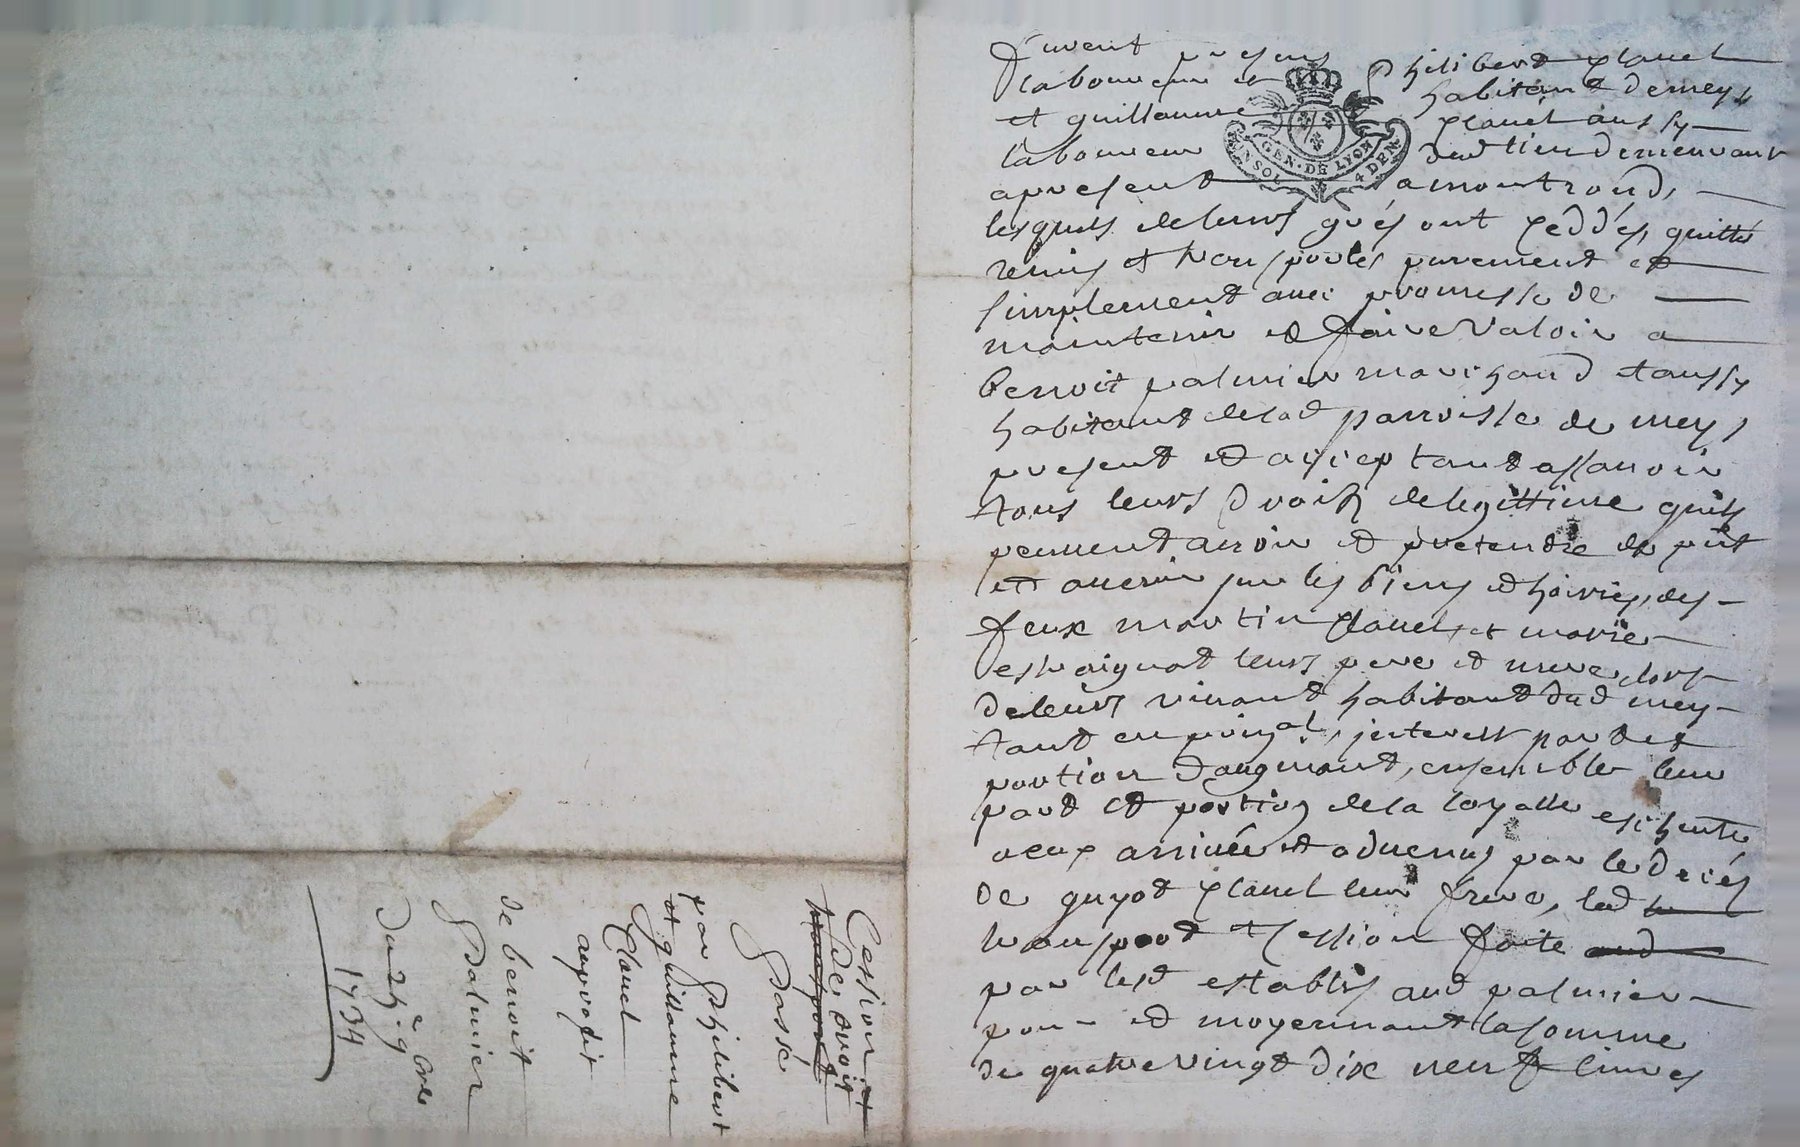 furent presens Philibert Clauel
laboureur et habitant de meys
et guillaume Clauel aussy
laboureur dud lieu demeurant
apresent a montrond,
lesquels de leurs grés ont ceddés, quittés
remis et transportés purement et
simplement auec promesse de
maintenir et faire valoir a
benoit palmier marchand et aussy
habitant de lad parroisse de meys
present et acceptant assauoir
tous leurs droits de legittime quils
peuuent auoir et pretendre de pnt
et auenir sur les biens et hoiries, des
feux martin Clauel et marie
leurs pere et mere, lors
de leurs viuant habitant dud mey
tant en prinçal, interest part et
portion d'augmant, ensemble leur
part et portion de la loyalle escheute
a eux arriuée et aduenus par le decés
de guyot Clauel leur frere, led
transport et cession faite aud
par lesd establis aud palmier
pour et moyennant la somme
de quatre vingt dix neuf liures
GEN. DE LYON
4 DEN.
Cession et
de droit
transport
passé
par Philibert
et guillaume
Clauel
au profit
de benoit
Palmier
du 25. 9bre
1734